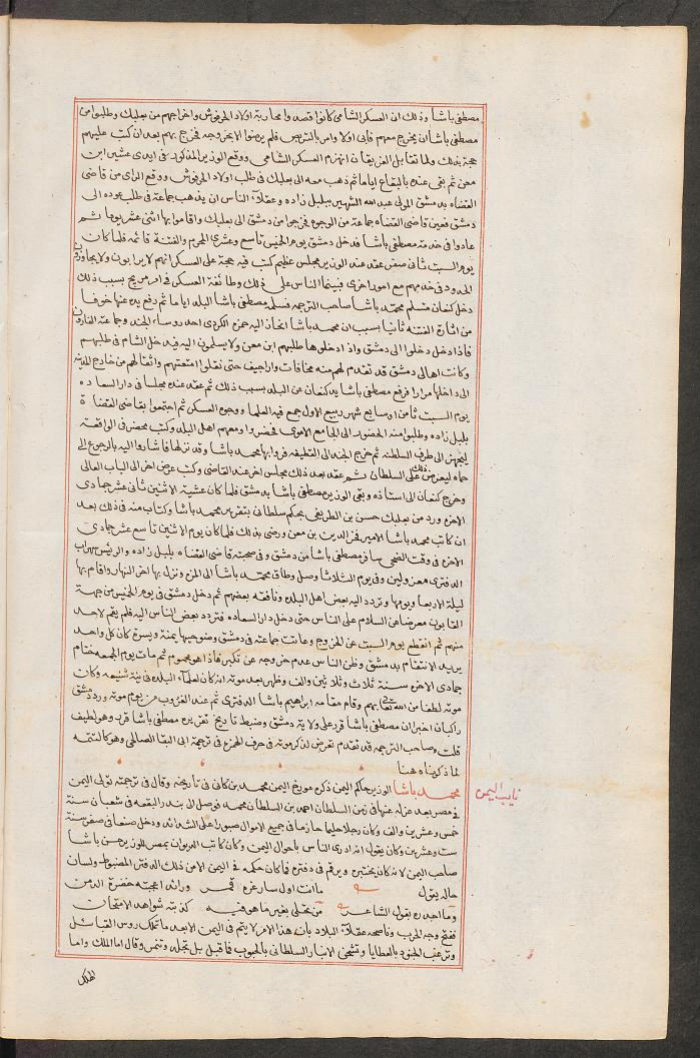 مصطفى باشا وذلك ان العسكر الشامي كانوا قصدوا محاربة اولاد الحرفوش واخراجهم من بعلبك وطلبوا من
مصطفى باشا ان يخرج معهم فابى اولا وامر بالتربص فلم يرضوا الا بخروجه فخرج بهم بعد ان كتب عليهم
حجة بذلك ولما تقابل الفريقان انهزم العسكر الشامي ووقع الوزير المذكور في ايدي عشير ابن
معن ثم بقي عنده بالبقاع اياما ثم ذهب معه الى بعلبك في طلب اولاد الحرفوش ووقع الراي من قاضي
القضاة بدمشق المولى عبد الله الشهير ببلبل زاده وعقلاء الناس ان يذهب جماعة في طلب عوده الى
دمشق فعين قاضي القضاة جماعة من الوجوه فخرجوا من دمشق الى بعلبك واقاموا بها اثنى عشر يوما ثم
عادوا في خدمة مصطفى باشا فدخل دمشق يوم الخميس تاسع وعشري المحرم والفتنة قائمة فلما كان
يوم السبت ثاني صفر عقد عند الوزير مجلس عظيم كتب فيه حجة على العسكر انهم لا يرابون ولا يتجاوزون
الحدود في خدمهم مع امور اخرى فبينما الناس على ذلك وطائفة العسكر في امر مريج بسبب ذلك
دخل كنعان متسلم محمد باشا صاحب الترجمة فسلمه مصطفى باشا البلد اياما ثم رفع يده عنها خوفا
من اثارة الفتنة ثانيا بسبب ان محمد باشا انحاز اليه حمزة الكردي احد روساء الجند وجماعته الفارون
فاذا دخل دخلوا الى دمشق واذا دخلوها طلبهم ابن معن ولا يسلمون اليه فيدخل الشام في طلبهم
وكانت اهالي دمشق قد تقدم لهم منه مخافات واراجيف حتى نقلوا امتعتهم واثقالهم من خارج المدينة
الى داخلها مرارا فرفع مصطفى باشا يد كنعان عن البلد بسبب ذلك ثم عقد عنده مجلسا في دار السعادة
يوم السبت ثامن او سابع شهر ربيع الاول جمع فيه العلما ووجوه العسكر ثم اجتمعوا بقاضي القضاة
بلبل زاده وطلبوا منه الحضور الى الجامع الاموي فحضر وا ومعهم اهل البلد وكتب محضر في الواقعة
ليجهز الى طرف السلطنة ثم خرج الجند الى القطيفة فرد بها محمد باشا وقد نزلها فاشاروا اليه بالرجوع الى
حماه ليعرض ذلك على السلطان ثم عقد بعد ذلك مجلس اخر عند القاضي وكتب عرض اخر الى الباب العالي
وخرج كنعان الى استاذه وبقي الوزير مصطفى باشا بدمشق فلما كان عشية الاثنين ثاني عشر جمادي
الاخرة ورد من بعلبك حسن بن الطريفي بحكم سلطاني بتقرير محمد باشا وكتاب منه في ذلك بعد
ان كاتب محمد باشا الامير فخر الدين بن معن ورضي بذلك فلما كان يوم الاثنين تاسع عشر جمادي
الاخره في وقت الضحى سافر مصطفى باشا من دمشق وفي صحبته قاضي القضاة بلبل زاده والرئيس سهراب
الدفتري معزولين وفي يوم الثلاثا وصل وطاق محمد باشا الى المزه ونزل بها اخر النهار واقام بها
ليلة الاربعا ويومها وتردد اليه بعض اهل البلد ونافقه بعضهم ثم دخل دمشق في يوم الخميس من جهة
القابون معرضا عن السلام على الناس حتى دخل دار السعادة فتردد بعض الناس اليه فلم يقم لاحد
منهم ثم انقطع يوم السبت عن الخروج وعاثت جماعته في دمشق وضواحيها يمنة ويسرة كان كل واحد
يريد الانتقام بدمشق وظن الناس عدم خروجه عن تكبر فاذا هو محموم ثم مات يوم الجمعه ختام
جمادي الاخره سنة ثلاث وثلاثين والف وظهر بعد موته انه كان لعلماء البلد في نية شنيعه وكان
موته لطفا من الله تعالى بهم وقام مقامه ابراهيم باشا الدفتري ثم عند الغروب من يوم موته ورد دمشق
راكبان اخبرا ان مصطفى باشا قرر على ولاية دمشق وضبط تاريخ تقريره مصطفى باشا قرر وهو لطيف
قلت وصاحب الترجمه قد تقدم تعرض لذكر موته في حرف الهمزة في ترجمة ابي البقا الصالحي وهو كالتتمة
لما ذكرناه هنا
محمد باشا الوزير حاكم اليمن ذكره مورخ اليمن محمد بن كاني في تاريخه وقال في ترجمته تولى اليمن
نايب اليمن
في مصر بعد عزله عنها في زمن السلطان احمد بن السلطان محمد فوصل الى بندر البقعة في شعبان سنة
خمس وعشرين والف وكان رجلا حليما حازما في جميع الاموال صبورا على الشدائد ودخل صنعا في صفر سنة
ست وعشرين وكان يقول انه ادرى الناس باحوال اليمن وكان كاتب الديوان بمصر للوزير حسن باشا
صاحب اليمن لانه كان يختبره ويرقم في دفتره فاكان حكمه في اليمن الا من ذلك الدفتر المضبوط ولسان
حاله يقول ما انت اول سار غره قمر ورائد اعجبته خضرة الدمن
وما اجدره بقول الشاعر من تحلى بغير ما هو فيه كذبته شواهد الامتحان
ففتح وجه الحرب وناصحه عقلاء البلاد بان هذا الامر لا يتم في اليمن الا بعد ما تملك روس القبائل
وترغب الجنود بالعطايا وتشحن الانبار السلطاني بالحبوب فما قبل بل تجلد وتنمر وقال اما الملك واما
الهلك